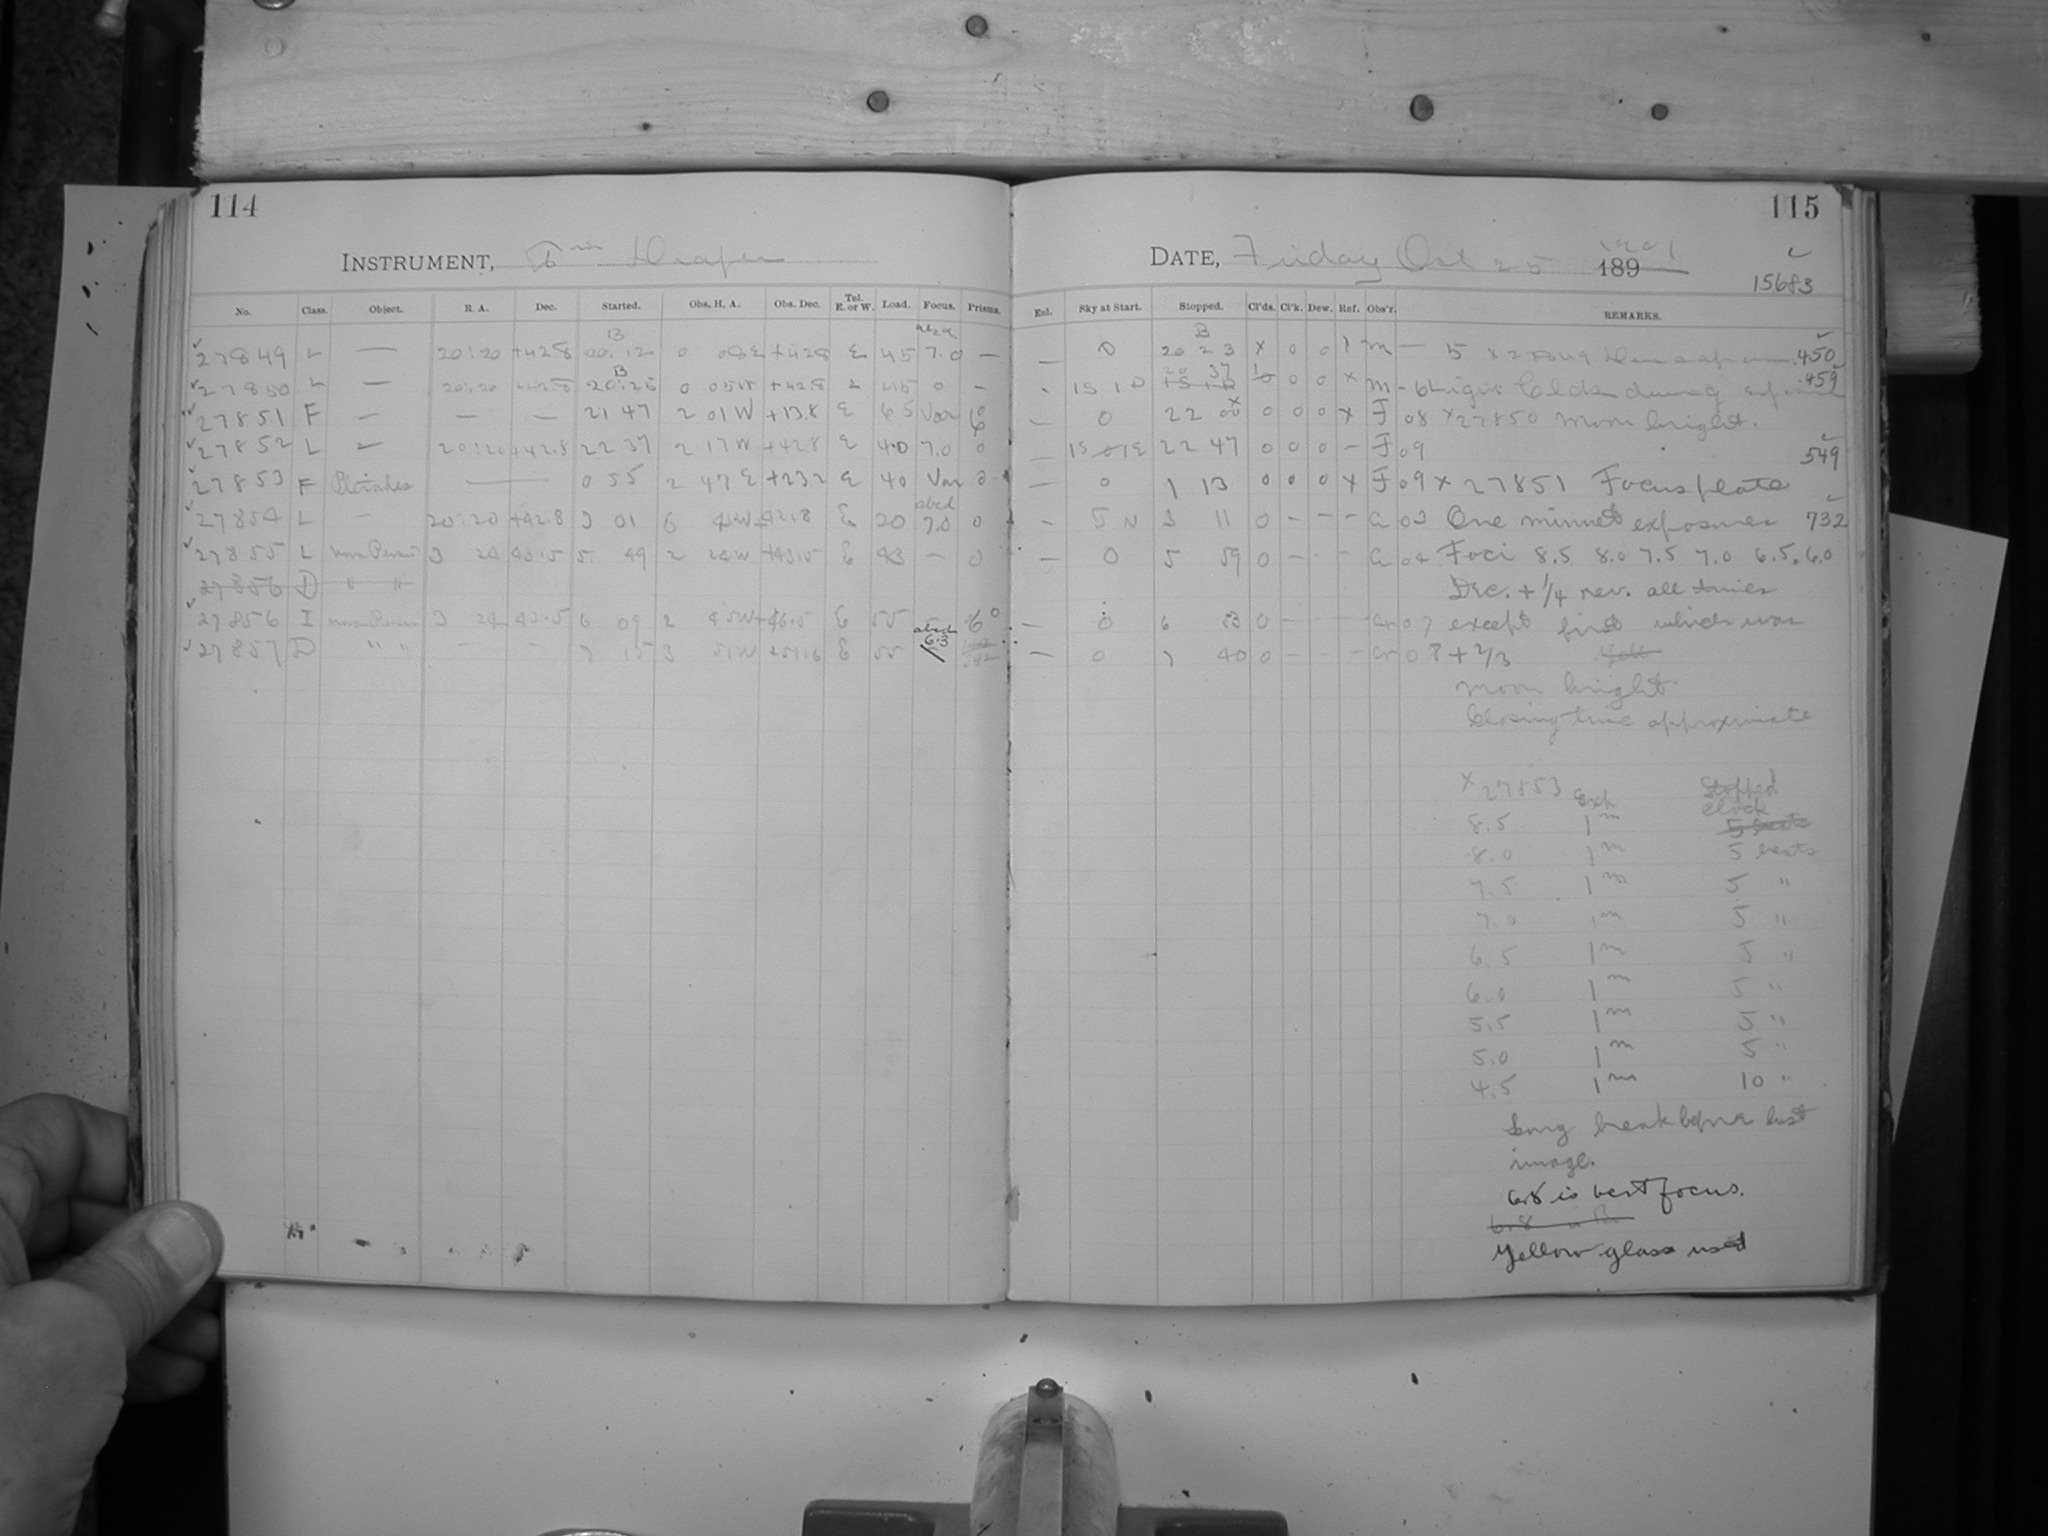 114
115
INSTRUMENT, 8 in Draper
DATE, Friday Oct 25 1901 189
15683
No. Class. Object. R. A. Dec. Started. Obs. H. A. Obs. Dec. Tel. E. or W. Load. Focus. Prisms.
Exl. Sky at Start. Stopped. Cl'ds. Cl'k. Dew. Ref. Obs'r. REMARKS.
27849 L — 20:20 +42.8 B 20:12 0 08E +42.8 E 45 7.0 —
— 0 B 20 23 x 0 0 1 m — 5 .450
27850 L — 20:20 +42.8 B 20:25 0 05W +42.8 E 45 0 —
20 37 0 0 x m - 6 Light Clds during .459
27851 F — — — 21 47 2 01W +13.8 E 65 Var
— 0 22 00 0 0 0 x F 08 x27850 Moon bright.
27852 L — 20:20 +42.8 22 37 2 17W +42.8 E 40 7.0 0
— 22 47 0 0 0 — F 09
549
27853 F Pleiades — 0 55 2 47 E +23.2 E 40 Var 0
— 0 1 13 0 0 0 x F 09 x 27851 Focus plate
27854 L — 20:20 +42.8 3 01 6 42.8 E 20 7.0 0
— 5 N 3 11 0 - - - 03 One minnet exposures 732
27855 L nova Persei 3 24 43.5 5 49 2 24W +43.5 E 43 — 0
— 0 5 59 0 - - - 04 Foci 8.5 8.0 7.5 7.0 6.5. 6.0
27856 D " "
Dec. + 1/4 rev. all times
27856 I nova Persei 3 24 43.5 6 09 2 45W E 55 0
— 0 6 53 0 - - - 07 except first which was
27857 D " " — — 7 15 3 51W +51.6 E 55 6.3
— 0 7 40 0 - - - 08 + 2/3
moon bright
Closing time approximate
x 27853 Exp Stopped
clock
8.5 1m 5 beats
8.0 1m 5 beats
7.5 1m 5 "
7.0 1m 5 "
6.5 1m 5 "
6.0 1m 5 "
5.5 1m 5 "
5.0 1m 5 "
4.5 1m 10 "
Long break before last
image.
6.8 is best focus.
6.8
Yellow glass used